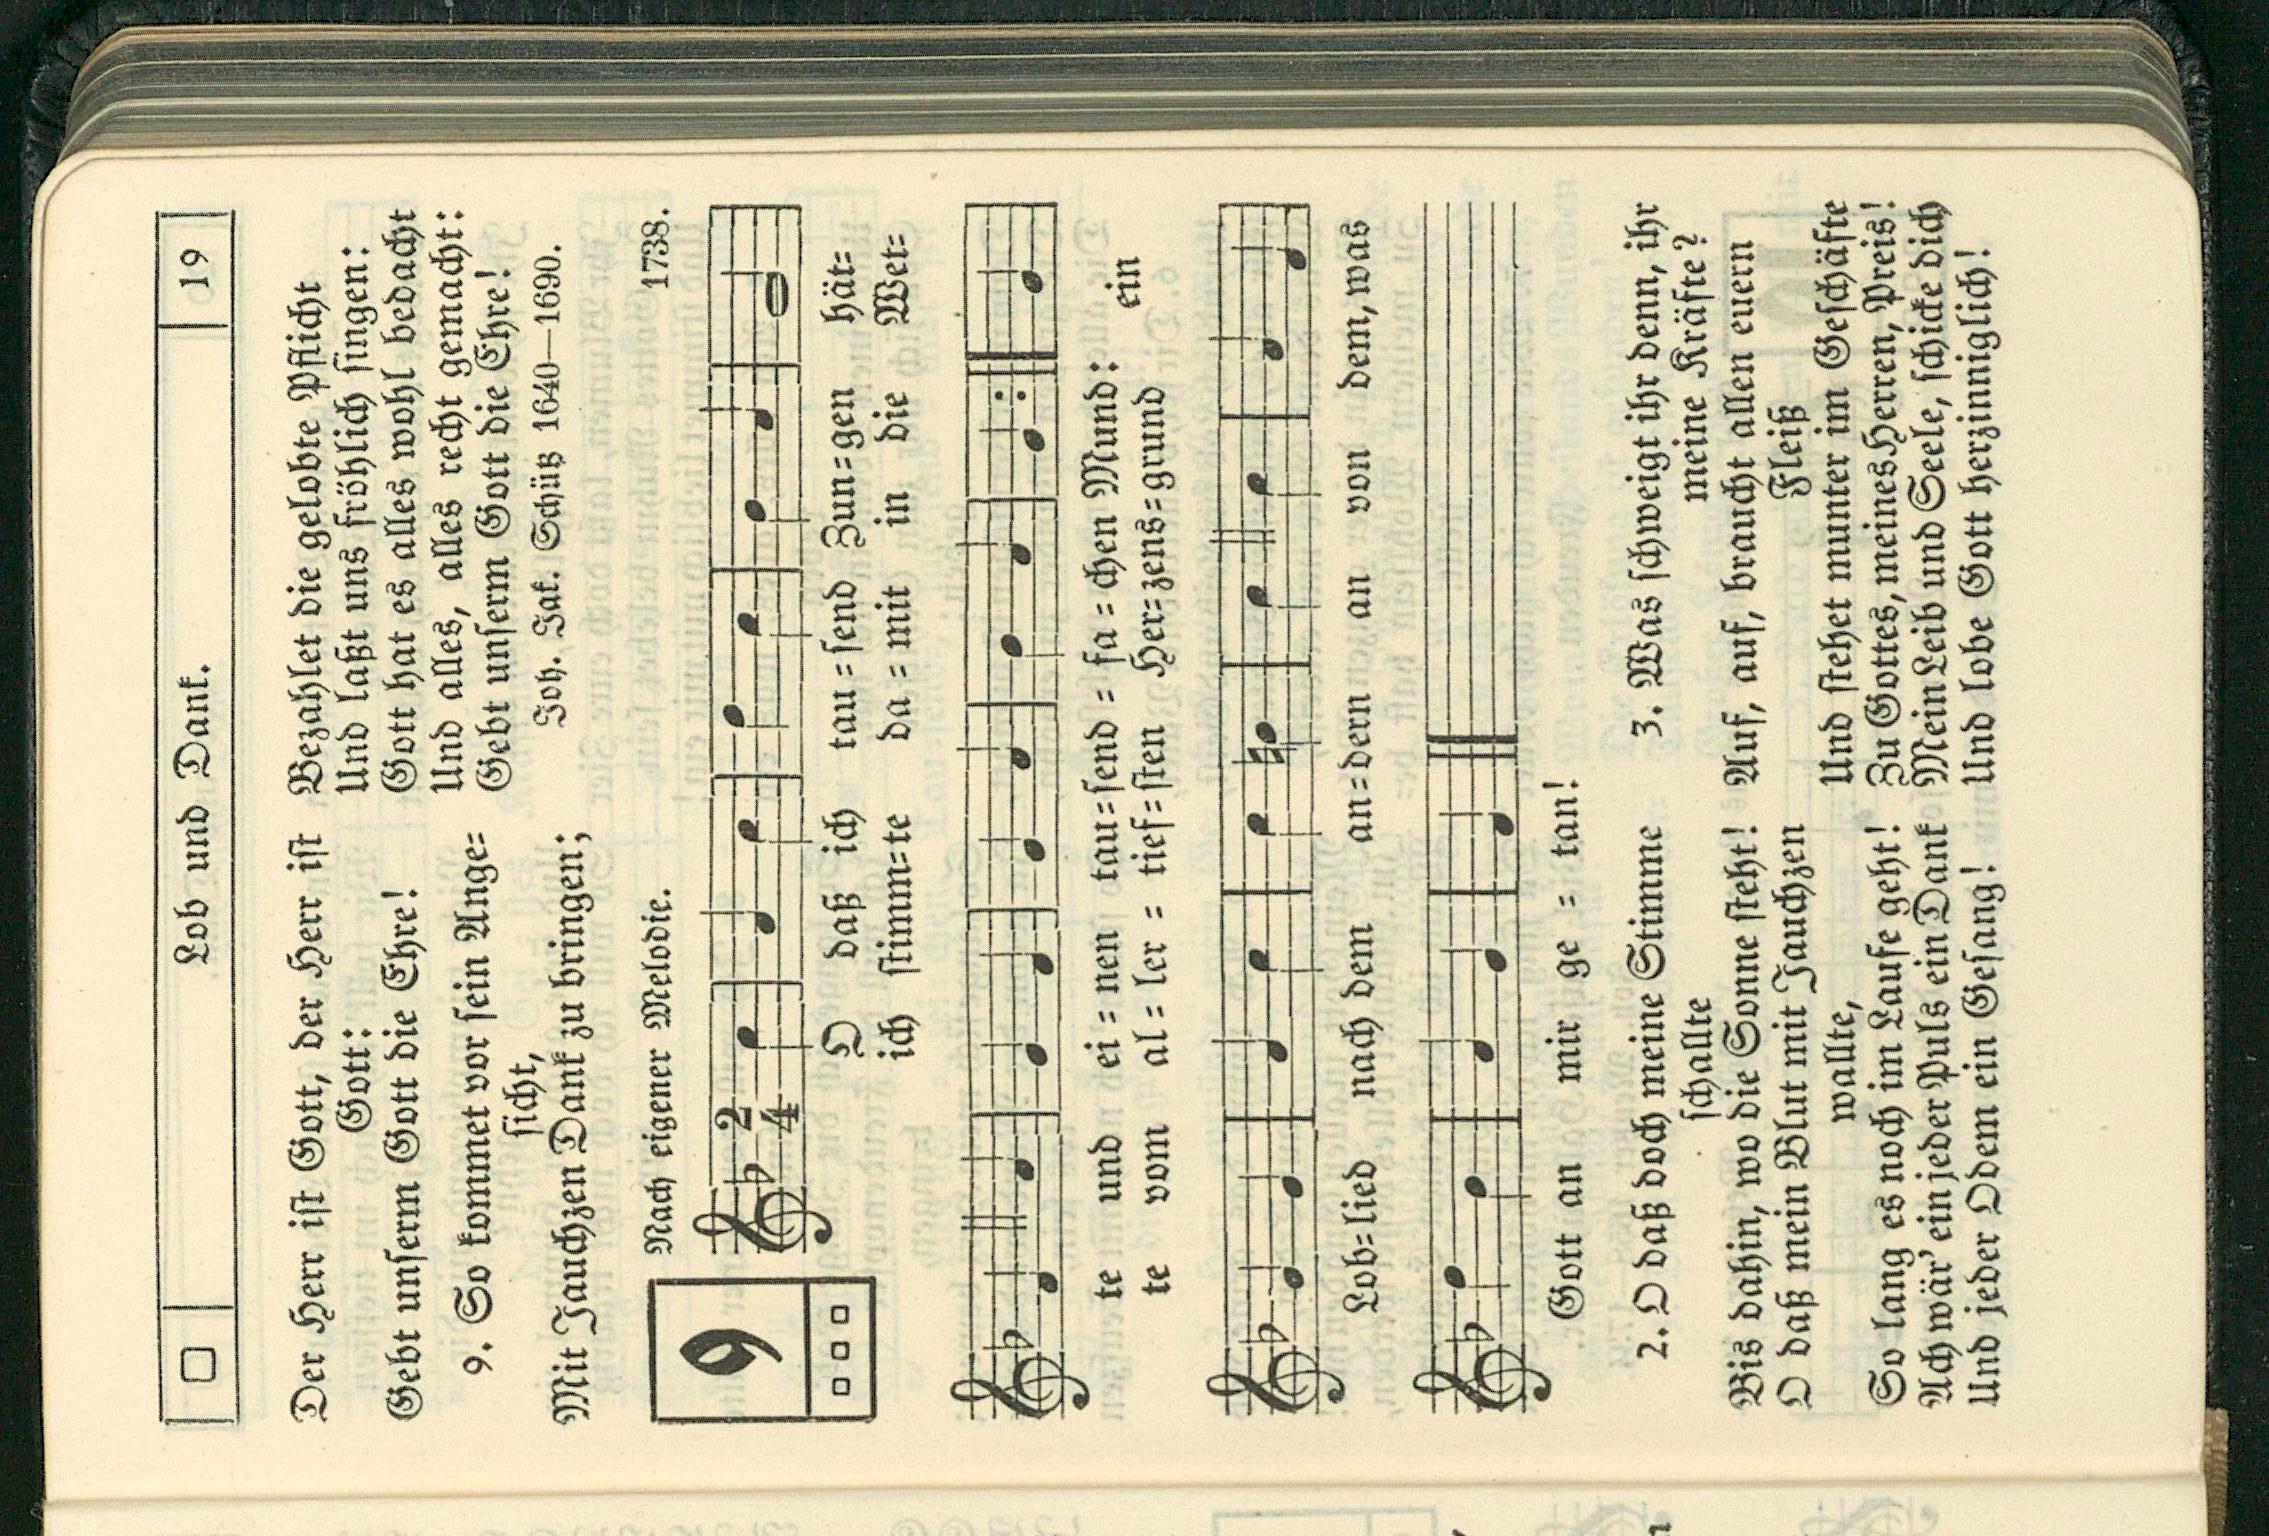 Lob und Dank.
19
Der Herr ist Gott, der Herr ist
Gott:
Gebt unserm Gott die Ehre!
9. So kommet vor sein Ange=
sicht,
Mit Jauchzen Dank zu bringen;
Bezahlet die gelobte Pflicht
Und laßt uns fröhlich singen:
Gott hat es alles wohl bedacht
Und alles, alles recht gemacht:
Gebt unserm Gott die Ehre!
Joh. Jak. Schütz 1640—1690.
9
Nach eigener Melodie.
1738.
2
4
O daß ich tau=send Zun=gen hät=
ich stimm=te da=mit in die Wet=
te und ei=nen tau=send=fa=chen Mund:
te vom al=ler=tief=sten Her=zens=grund
ein
Lob=lied nach dem an=dern an von dem, was
Gott an mir ge=tan!
2. O daß doch meine Stimme
schallte
Bis dahin, wo die Sonne steht!
O daß mein Blut mit Jauchzen
wallte,
So lang es noch im Laufe geht!
Ach wär' ein jeder Puls ein Dank
Und jeder Odem ein Gesang!
3. Was schweigt ihr denn, ihr
meine Kräfte?
Auf, auf, braucht allen euern
Fleiß
Und stehet munter im Geschäfte
Zu Gottes, meines Herren, Preis!
Mein Leib und Seele, schicke dich
Und lobe Gott herzinniglich!